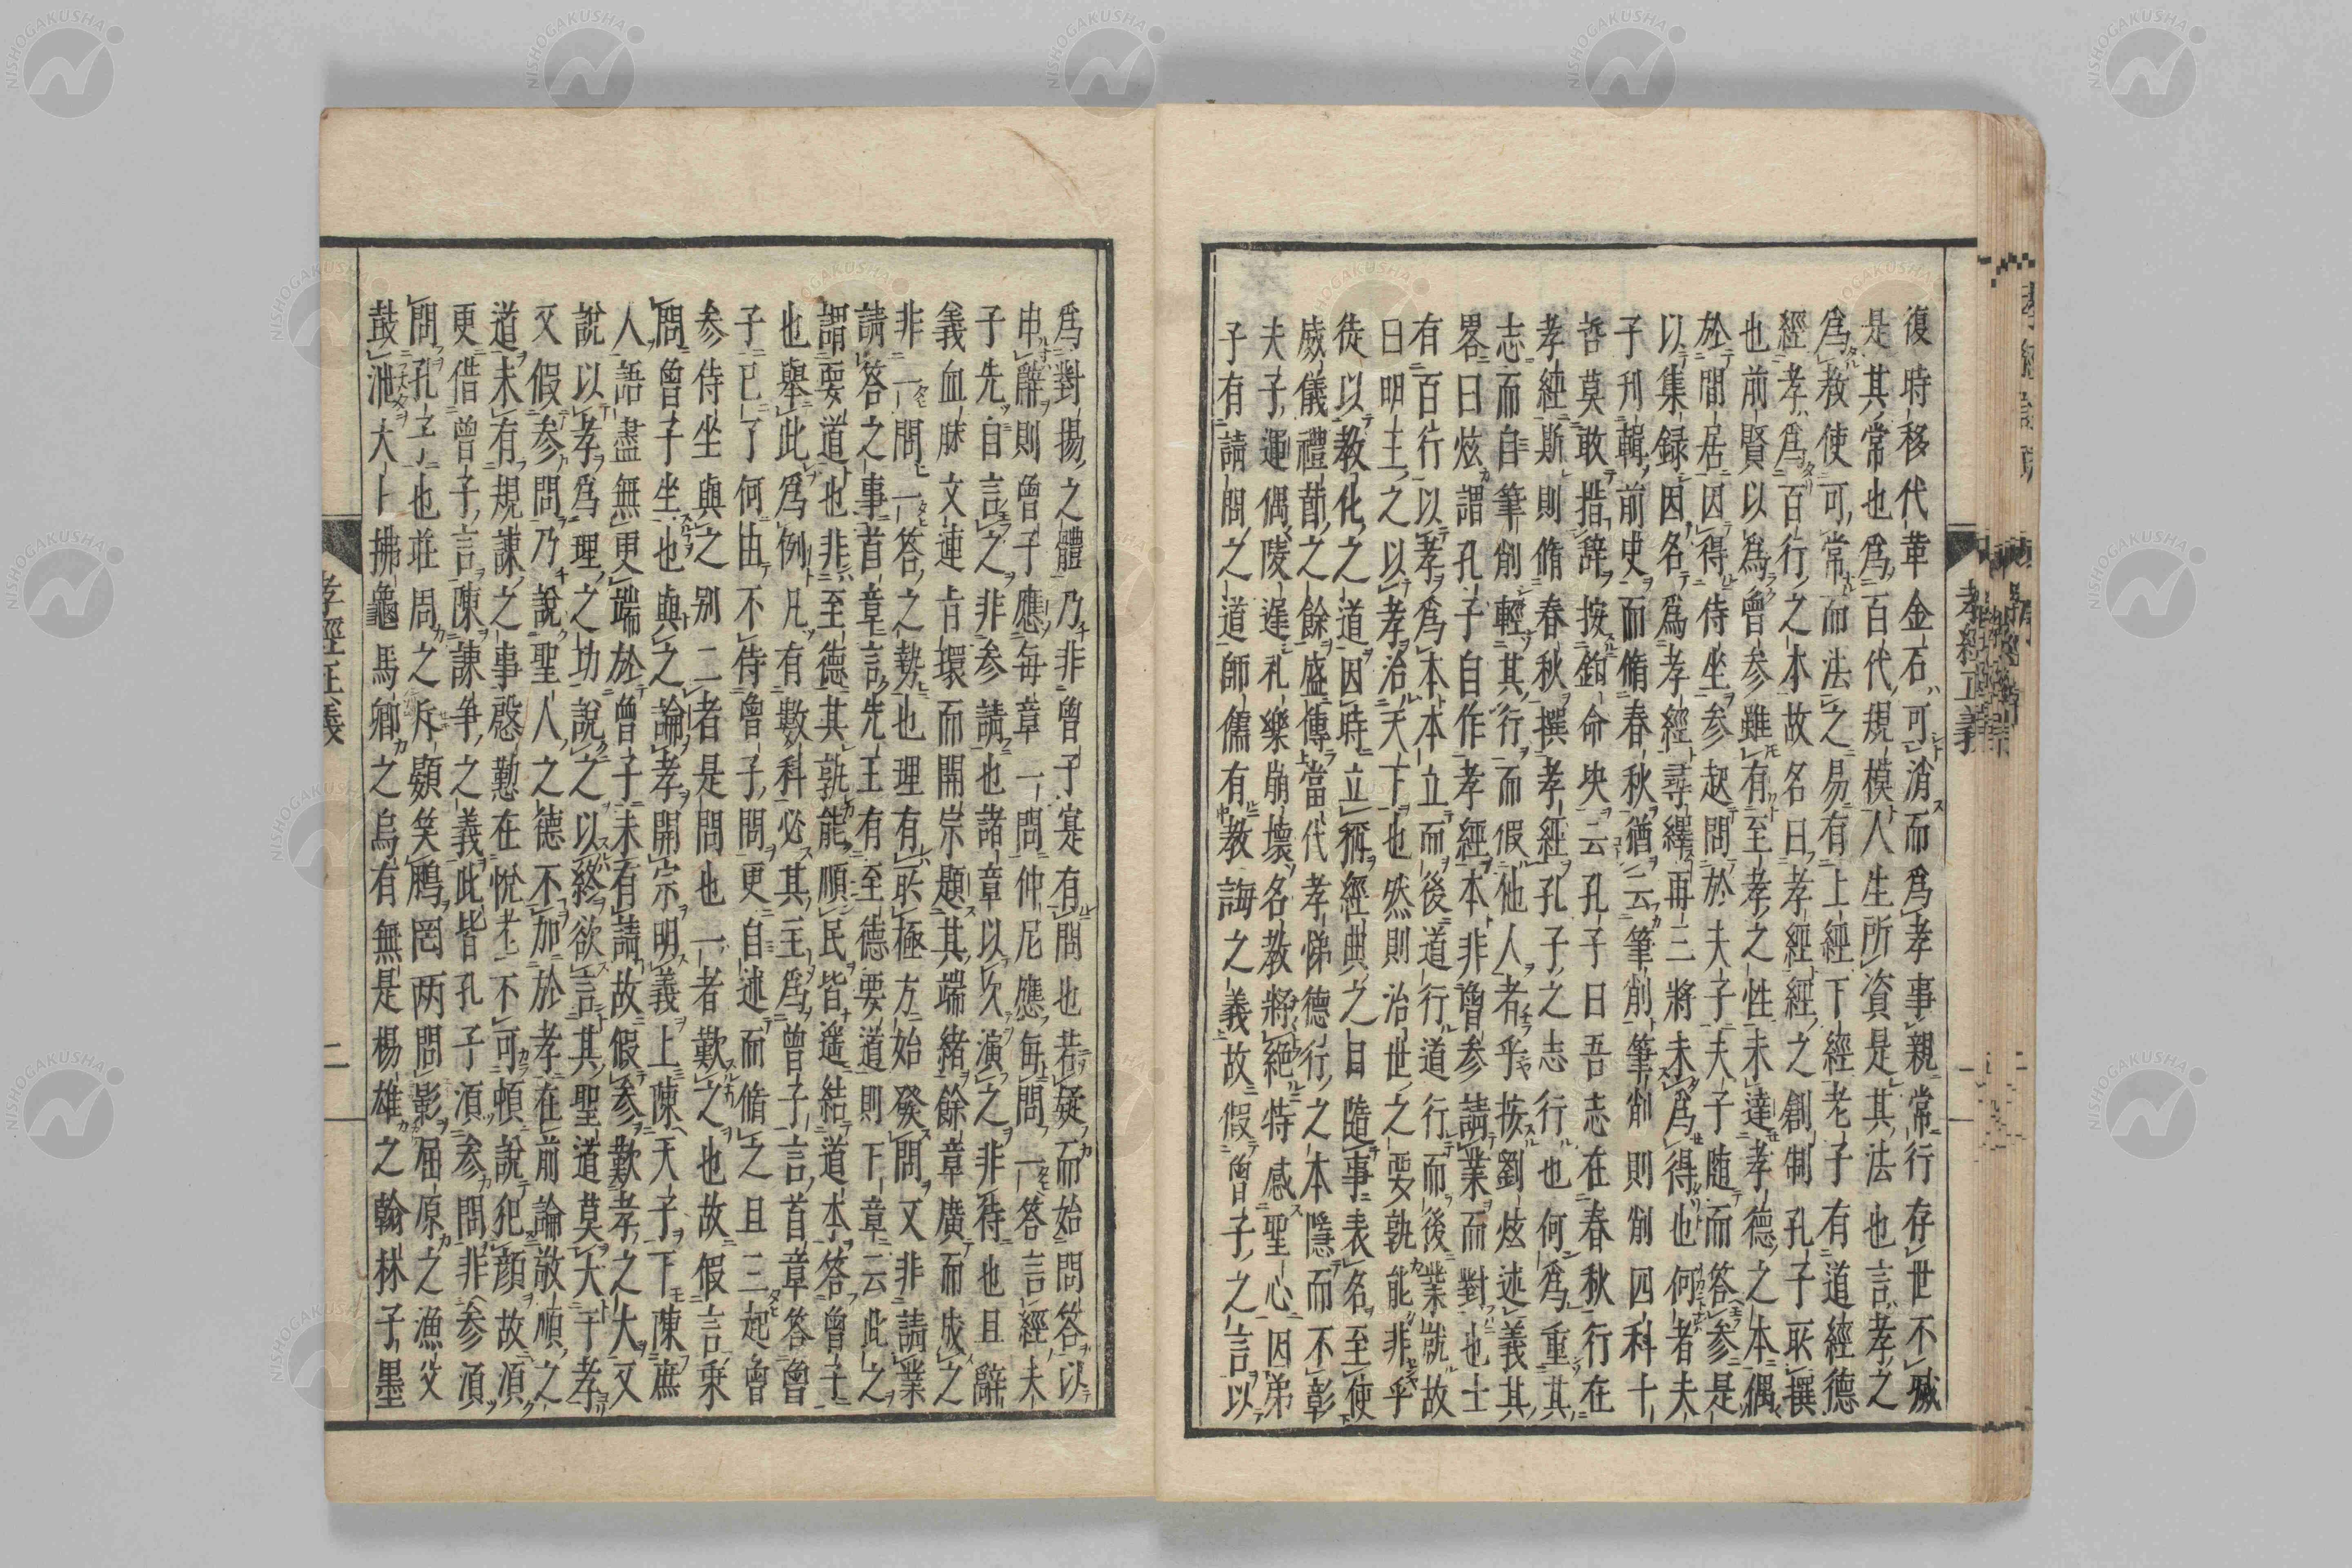 復時移代革金石可消而爲孝事親常行存世不滅
是其常也爲百代規模人生所資是其法也言孝之
爲教使可常而法之易有上經下經老子有道經德
經孝爲百行之本故名曰孝經經之創制孔子所撰
也前賢以爲曾參雖有至孝之性未達孝德之本偶
於間居因得侍坐參起問於夫子夫子随而答參是
以集録因名爲孝經尋繹再三將未爲得也何者夫
子刊輯前史而脩春秋猶云筆則筆削則削四科十
哲莫敢措辞按鉤命决云孔子曰吾志在春秋行在
孝經斯則脩春秋撰孝經孔子之志行也何爲重其
志而自筆削輕其行而假他人者乎按劉炫述義其
畧曰炫謂孔子自作孝經本非曾參請業而對也士
有百行以孝爲本本立而後道行道行而後業就故
曰明王之以孝治天下也然則治世之要孰能非乎
徒以教化之道因時立稱經典之目隨事表名至使
威儀禮節之餘盛傳當代孝悌德行之本隱而不彰
夫子運偶陵遲礼樂崩壞名教將絕特感聖心因弟
子有請問之道師儒有教誨之義故假曾子之言以
孝經正義
爲對揚之體乃非曾子寔有問也若疑而始問答以
申辭則曾子應每章一問仲尼應每問一答言經夫
子先自言之非参請也諸章以次演之非待也且辭
義血脉文連旨環而開宗題其端緒餘章廣而成之
非一問一答之勢也理有所極方始發問又非請業
請答之事首章言先王有至德要道則下章云此之
謂要道也非至德其孰能順民皆遥結道本答曾子
也舉此爲例凡有數科必其主爲曾子言首章答曾
子已了何由不待曾子問更自述而脩之且三起曾
参侍坐與之別二者是問也一者歎之也故假言乗
間曾子坐也與之論孝開宗明義上陳天子下陳庶
人語盡無更端於曾子未有請故假参歎孝之大又
說以孝爲理之功說之以終欲言其聖道莫大于孝
又假参問乃說聖人之德不加於孝在前論敬順之
道未有規諫之事慇懃在悅色不可頓說犯顔故須
更借曾子言陳諫爭之義此皆孔子須参問非参須
問孔子也莊周之斥鷃笑鵬罔两問影屈原之漁父
鼓枻大卜拂龜馬卿之烏有無是楊雄之翰林子墨
孝經正義
二